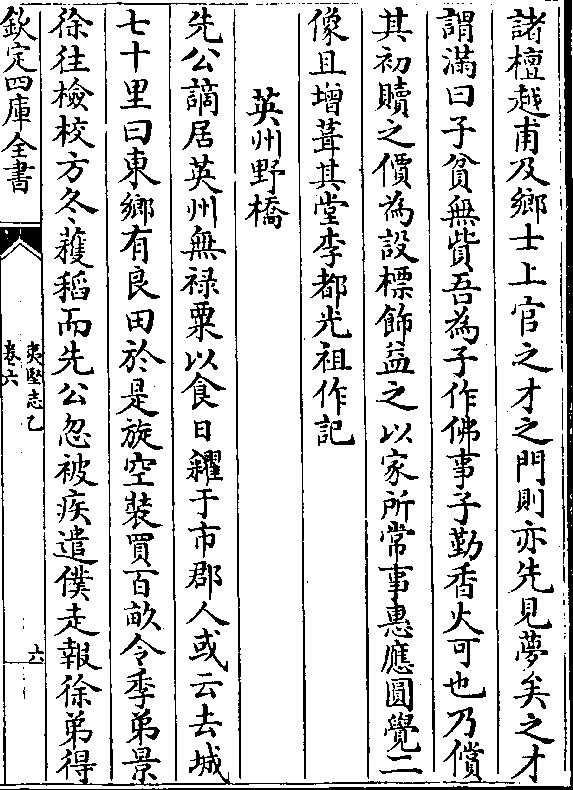 諸檀越甫及鄉士上官之才之門則亦先見夢矣之才
謂滿曰子貧無貲吾為子作佛事子勤香火可也乃償
其初贖之價為設標飾益之以家所常事惠應圓覺二
像且增葺其堂李都光祖作記
英州野橋
先公謫居英州無祿粟以食日糴于市郡人或云去城
七十里曰東鄉有良田於是旋空裝買百畝令季弟景
徐往檢校方冬穫稻而先公忽被疾遣僕走報徐弟得
欽定四庫全書
夷堅志乙
卷六
六